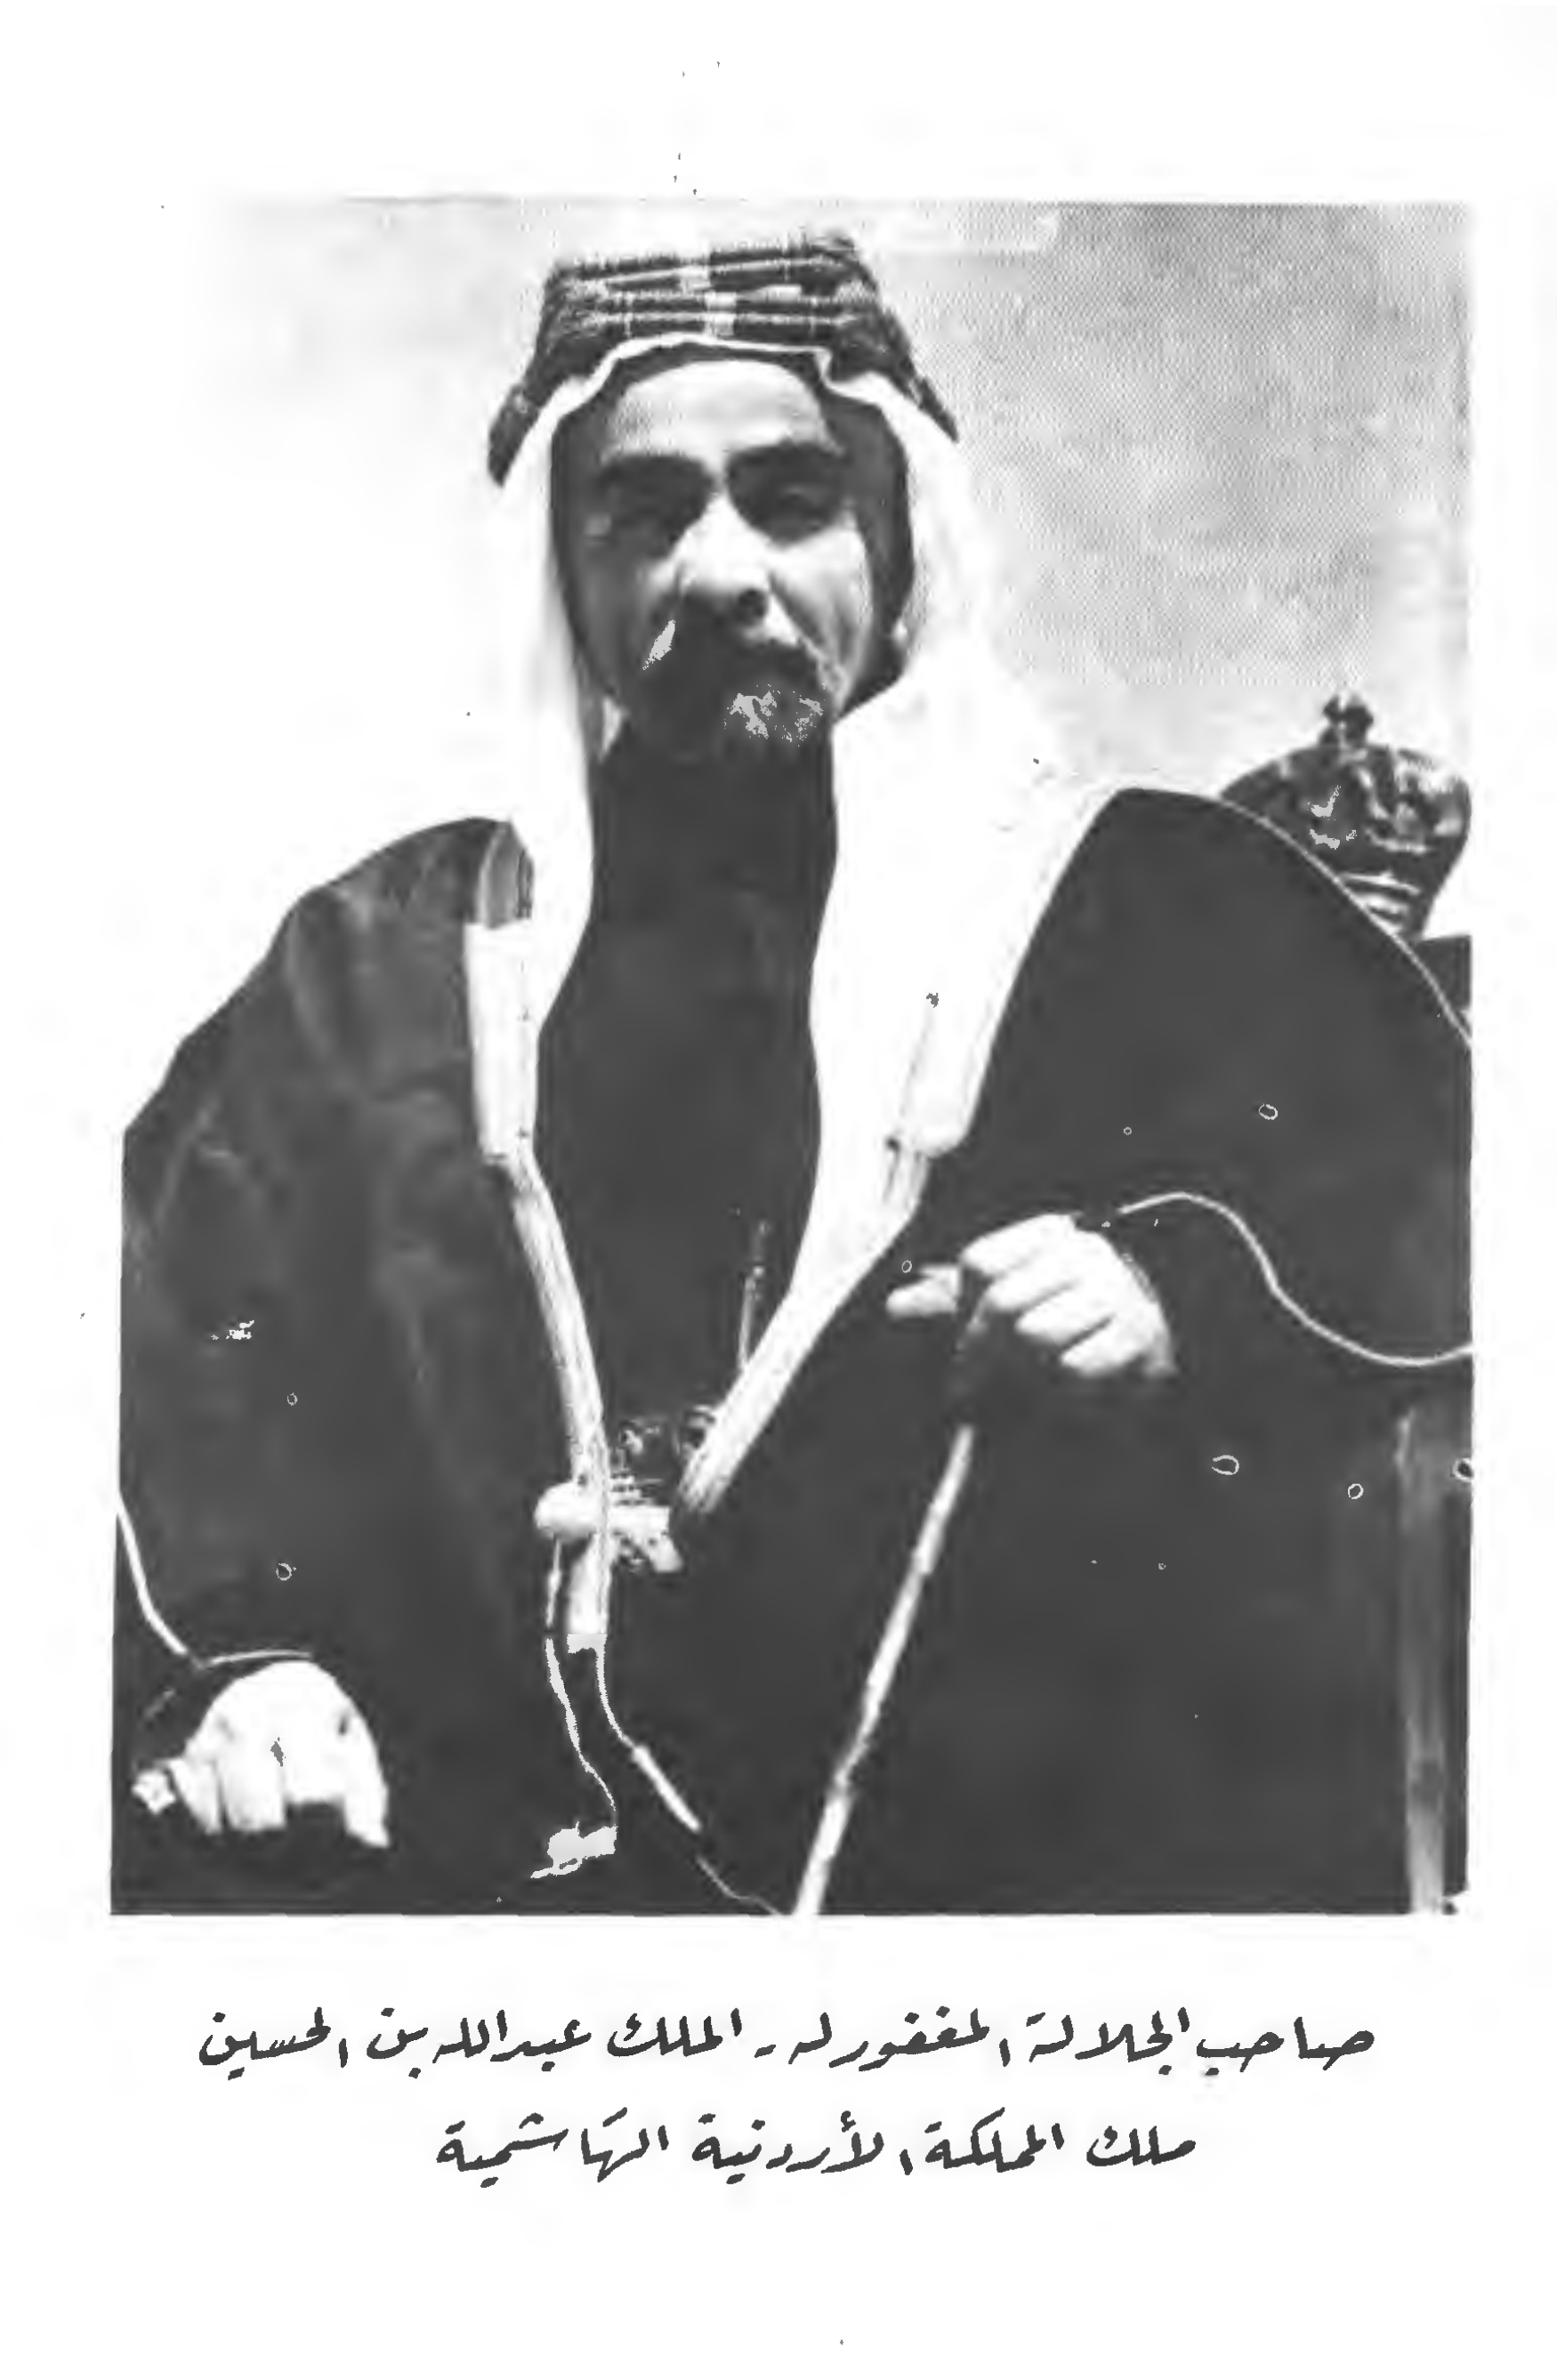 صاحب الجلالة المغفور له - الملك عبدالله بن الحسين
ملك المملكة الأردنية الهاشمية